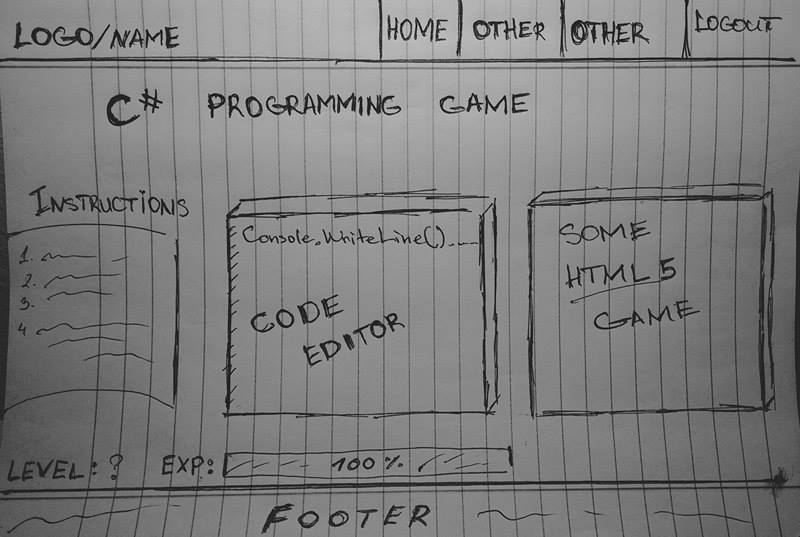 LOGO/NAME HOME OTHER OTHER LOGOUT
C# PROGRAMMING GAME
INSTRUCTIONS
1.
2.
3.
4
Console.WriteLine()
CODE
EDITOR
SOME
HTML5
GAME
LEVEL: ? EXP: 100%
FOOTER